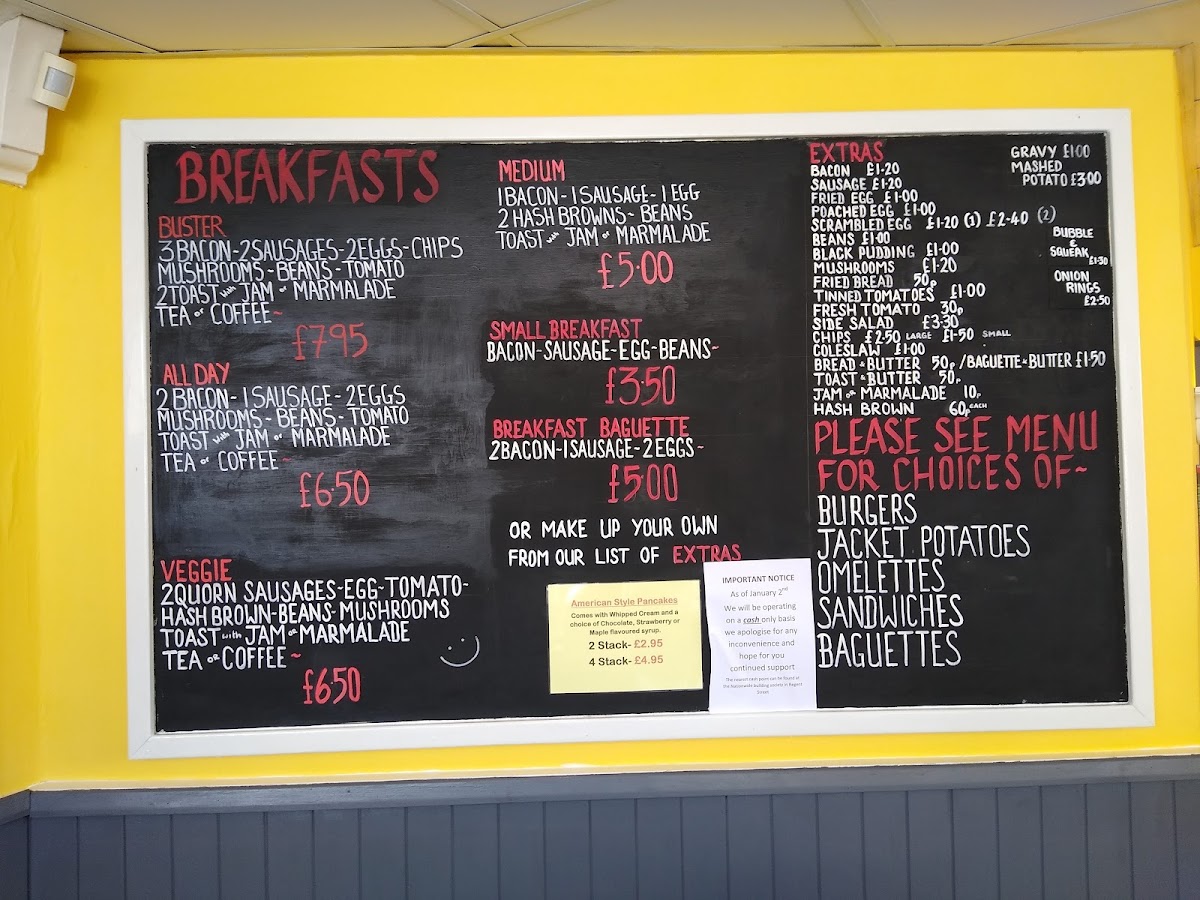 BREAKFASTS
BUSTER
3 BACON-2 SAUSAGES-2 EGGS-CHIPS
MUSHROOMS~BEANS-TOMATO
2 TOAST with JAM or MARMALADE
TEA or COFFEE~
£7.95
ALL DAY
2 BACON-1 SAUSAGE-2 EGGS
MUSHROOMS-BEANS-TOMATO
TOAST with JAM or MARMALADE
TEA or COFFEE~
£6.50
VEGGIE
2 QUORN SAUSAGES-EGG-TOMATO-
HASH BROWN-BEANS-MUSHROOMS
TOAST with JAM or MARMALADE
TEA or COFFEE~
£6.50
MEDIUM
1 BACON-1 SAUSAGE-1 EGG
2 HASH BROWNS~BEANS
TOAST with JAM or MARMALADE
£5.00
SMALL BREAKFAST
BACON-SAUSAGE-EGG-BEANS~
£3.50
BREAKFAST BAGUETTE
2 BACON-1 SAUSAGE-2 EGGS~
£5.00
OR MAKE UP YOUR OWN
FROM OUR LIST OF EXTRAS
American Style Pancakes
Comes with Whipped Cream and a
choice of Chocolate, Strawberry or
Maple flavoured syrup.
2 Stack- £2.95
4 Stack- £4.95
IMPORTANT NOTICE
As of January 2nd
We will be operating
on a cash only basis
we apologise for any
inconvenience and
hope for you
continued support
The nearest cash point can be found at
the Nationwide building society in Regent
Street
EXTRAS
BACON £1.20
SAUSAGE £1.20
FRIED EGG £1.00
POACHED EGG £1.00
SCRAMBLED EGG £1.20 (1) £2.40 (2)
BEANS £1.00
BLACK PUDDING £1.00
MUSHROOMS £1.20
FRIED BREAD 50p
TINNED TOMATOES £1.00
FRESH TOMATO 30p
SIDE SALAD £3.30
CHIPS £2.50 LARGE £1.50 SMALL
COLESLAW £1.00
BREAD & BUTTER 50p / BAGUETTE & BUTTER £1.50
TOAST & BUTTER 50p
JAM or MARMALADE 10p
HASH BROWN 60p EACH
GRAVY £1.00
MASHED
POTATO £3.00
BUBBLE
&
SQUEAK
£1.30
ONION
RINGS
£2.50
PLEASE SEE MENU
FOR CHOICES OF~
BURGERS
JACKET POTATOES
OMELETTES
SANDWICHES
BAGUETTES